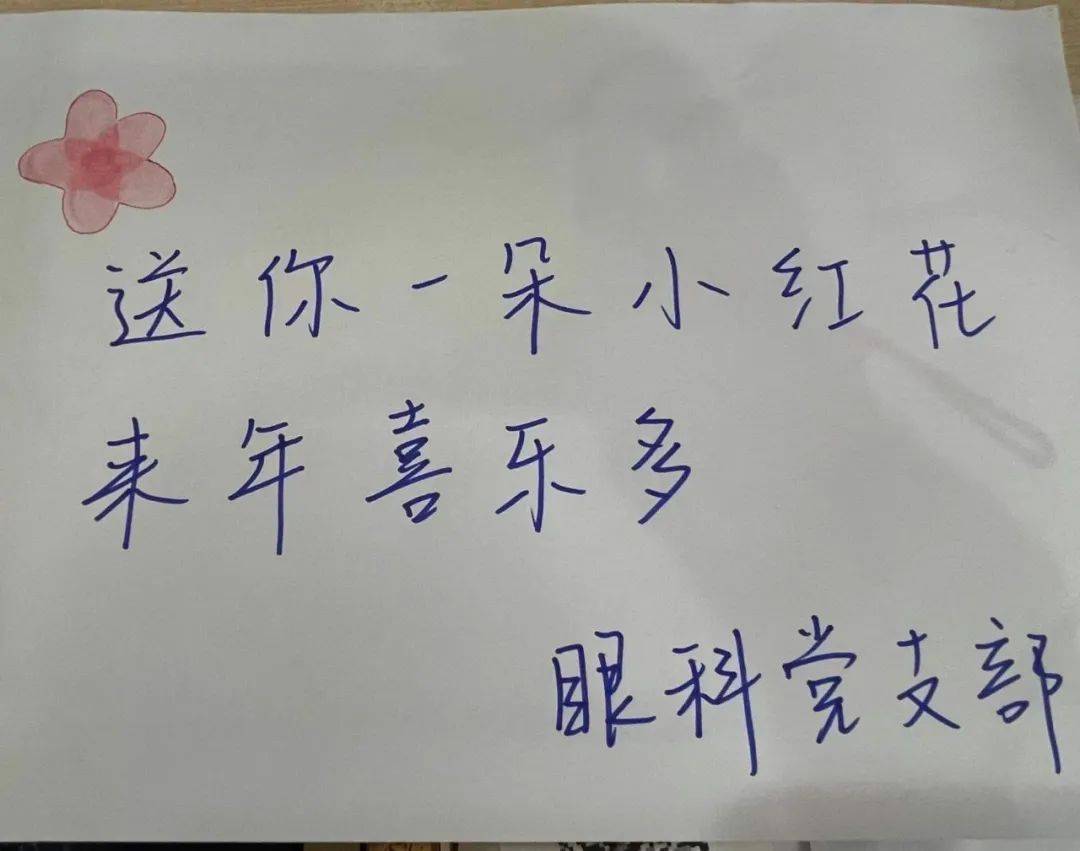 送你一朵小红花
来年喜乐多
眼科党支部